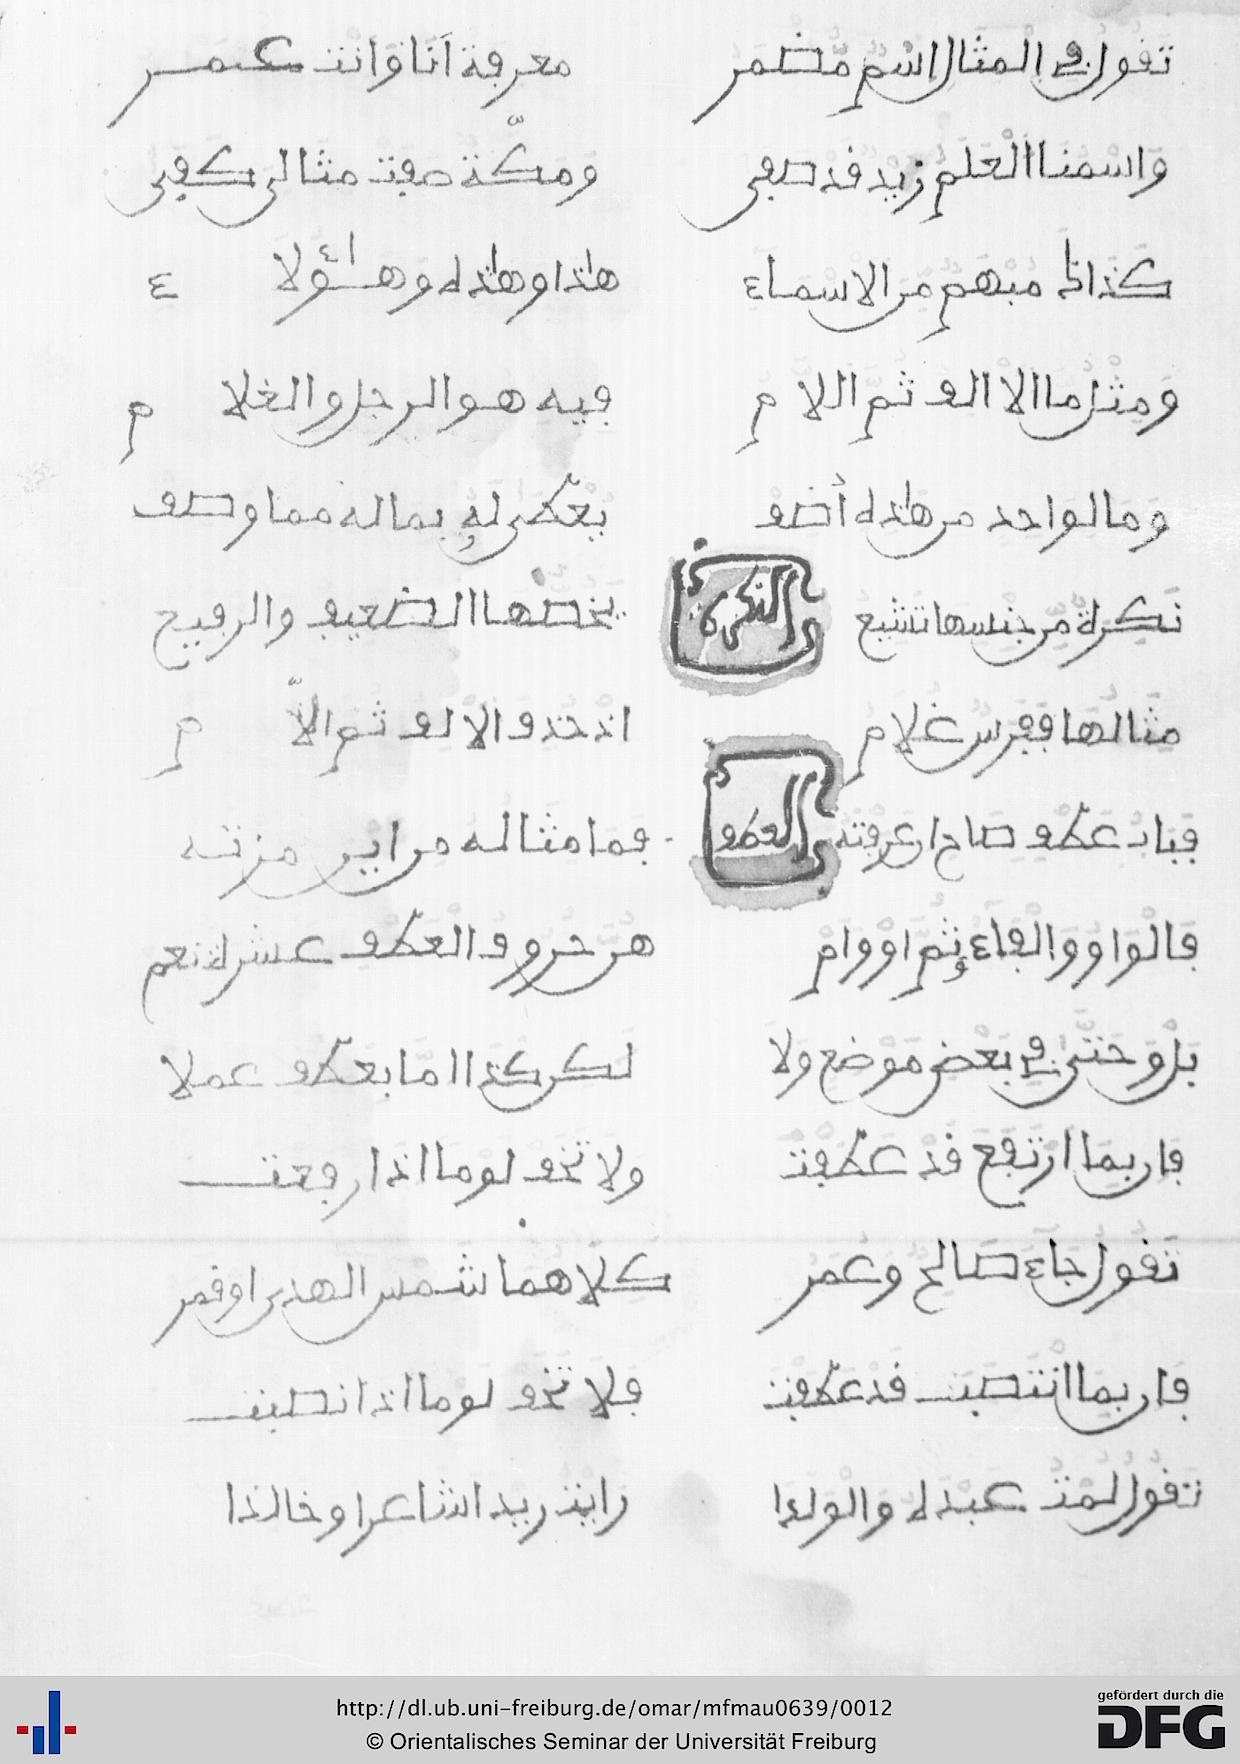 تقول في المثال اسم مضمر معرفة أنا وأنت عمر
واسمنا العلم زيد قد صفى ومكة صفت مثالى كفى
كذاك مبهم من الاسماء هاذا وهاذه وهـاؤلاء
ومثل ما الالف ثم اللام فيه هو الرجل والغلام
وما لواحد من هاذه أضف يعطى له بماله مما وصف
نكرة من جنسها تشيع النكرة يخصها الضعيف والرفيع
مثالها ففرس غلام اذ حذفوا الالف ثم اللام
فباب عطف صاح ان عرفته العطف فما مثاله من اين مزته
فالواو والفاء وثم او وام هن حروف العطف عشرة نعم
بل وحتى في بعض موضع ولا لكن كذا اما بعطف عملا
فان بما ارتفع قد عطفت ولا تخف لوما اذا رفعت
تقول جاء صالح وعمر كلاهما شمس الهدى او قمر
فان بما انتصب قد عطفت فلا تخف لوما اذا نصبت
تقول لمت عبده والولدا رايت زيدا شاعرا وخالدا
http://dl.ub.uni-freiburg.de/omar/mfmau0639/0012
© Orientalisches Seminar der Universität Freiburg
gefördert durch die
DFG